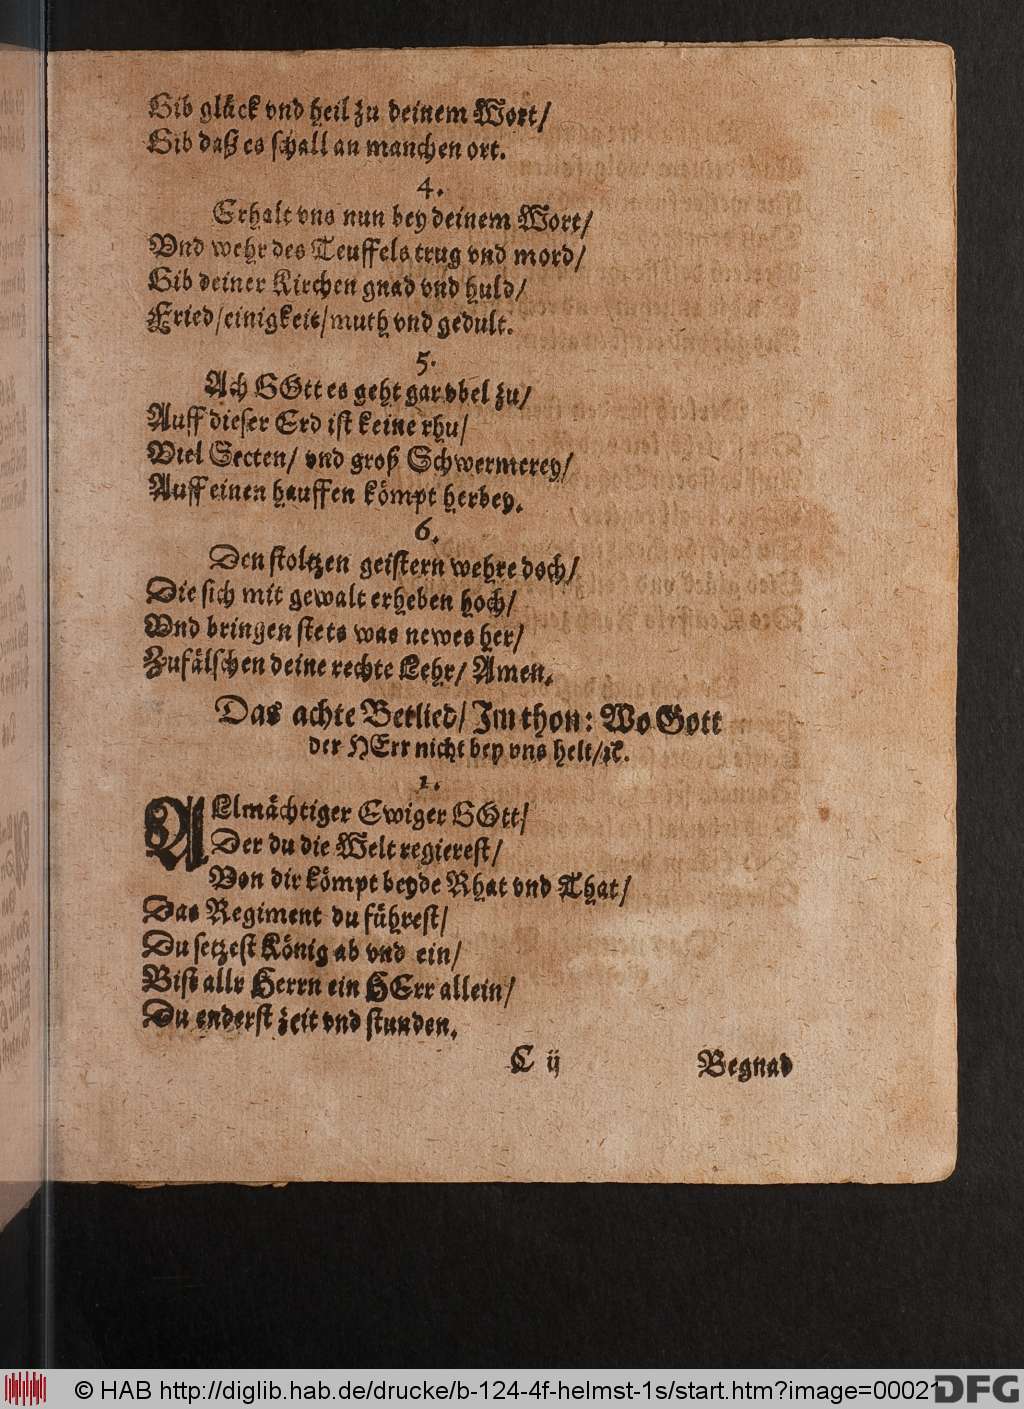 Gib glück vnd heil zu deinem Wort/
Gib daß es schall an manchen ort.
4.
Erhalt vns nun bey deinem Wort/
Vnd wehr des Teuffels trug vnd mord/
Gib deiner Kirchen gnad vnd huld/
Fried/einigkeit/muth vnd gedult.
5.
Ach GOtt es geht gar vbel zu/
Auff dieser Erd ist keine rhu/
Viel Secten/ vnd groß Schwermerey/
Auff einen hauffen kömpt herbey.
6.
Den stoltzen geistern wehre doch/
Die sich mit gewalt erheben hoch/
Vnd bringen stets was newes her/
Zufälschen deine rechte Lehr/ Amen.
Das achte Betlied/ Im thon: Wo Gott
der HErr nicht bey vns helt/ꝛc.
1.
ALlmächtiger Ewiger GOtt/
Der du die Welt regierest/
Von dir kömpt beyde Rhat vnd That/
Das Regiment du führest/
Du setzest König ab vnd ein/
Bist allr Herrn ein HErr allein/
Du enderst zeit vnd stunden.
C ij Begnad
© HAB http://diglib.hab.de/drucke/b-124-4f-helmst-1s/start.htm?image=00021
DFG